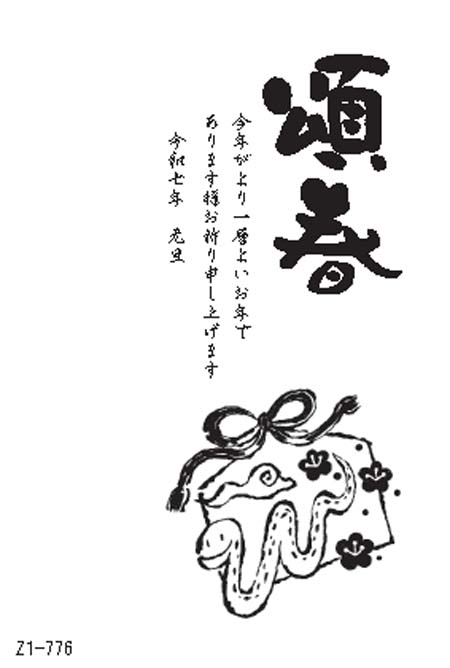 頌春
今年がより一層よいお年で
あります様お祈り申し上げます
令和七年 元旦
Z1-776